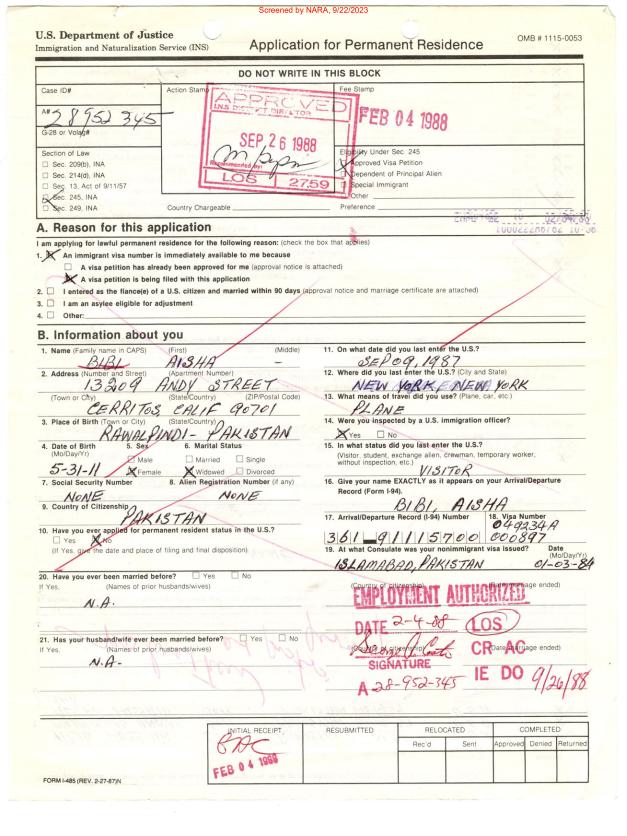 Screened by NARA, 9/22/2023
U.S. Department of Justice
Immigration and Naturalization Service (INS)
Application for Permanent Residence
OMB # 1115-0053
DO NOT WRITE IN THIS BLOCK
Case ID#
Action Stamp
Fee Stamp
A#
28952345
G-28 or Volag#
APPROVED
INS DISTRICT DIRECTOR
SEP 26 1988
Recommended by:
LOS 2759
FEB 04 1988
Section of Law
☐ Sec. 209(b), INA
☐ Sec. 214(d), INA
☐ Sec. 13, Act of 9/11/57
☒ Sec. 245, INA
☐ Sec. 249, INA
Country Chargeable
Eligibility Under Sec. 245
☒ Approved Visa Petition
☐ Dependent of Principal Alien
☐ Special Immigrant
☐ Other
Preference
A. Reason for this application
I am applying for lawful permanent residence for the following reason: (check the box that applies)
1. ☒ An immigrant visa number is immediately available to me because
☐ A visa petition has already been approved for me (approval notice is attached)
☒ A visa petition is being filed with this application
2. ☐ I entered as the fiance(e) of a U.S. citizen and married within 90 days (approval notice and marriage certificate are attached)
3. ☐ I am an asylee eligible for adjustment
4. ☐ Other:
B. Information about you
1. Name (Family name in CAPS) (First) (Middle)
BIBI AISHA –
2. Address (Number and Street) (Apartment Number)
13209 ANDY STREET
(Town or City) (State/Country) (ZIP/Postal Code)
CERRITOS CALIF 90701
3. Place of Birth (Town or City) (State/Country)
RAWALPINDI - PAKISTAN
4. Date of Birth (Mo/Day/Yr)
5-31-11
5. Sex
☐ Male
☒ Female
6. Marital Status
☐ Married ☐ Single
☒ Widowed ☐ Divorced
7. Social Security Number
NONE
8. Alien Registration Number (if any)
NONE
9. Country of Citizenship
PAKISTAN
10. Have you ever applied for permanent resident status in the U.S.?
☐ Yes ☒ No
(If Yes, give the date and place of filing and final disposition)
11. On what date did you last enter the U.S.?
SEP 09, 1987
12. Where did you last enter the U.S.? (City and State)
NEW YORK, NEW YORK
13. What means of travel did you use? (Plane, car, etc.)
PLANE
14. Were you inspected by a U.S. immigration officer?
☒ Yes ☐ No
15. In what status did you last enter the U.S.?
(Visitor, student, exchange alien, crewman, temporary worker, without inspection, etc.)
VISITOR
16. Give your name EXACTLY as it appears on your Arrival/Departure Record (Form I-94).
BIBI, AISHA
17. Arrival/Departure Record (I-94) Number
361 91115700
18. Visa Number
049234A
000897
19. At what Consulate was your nonimmigrant visa issued? Date (Mo/Day/Yr)
ISLAMABAD, PAKISTAN 01-03-84
20. Have you ever been married before? ☐ Yes ☐ No
If Yes, (Names of prior husbands/wives) (Country of citizenship) (Date marriage ended)
N.A.
EMPLOYMENT AUTHORIZED
DATE 2-4-88 LOS
21. Has your husband/wife ever been married before? ☐ Yes ☐ No
If Yes, (Names of prior husbands/wives) (Country of citizenship) (Date marriage ended)
N.A-
SIGNATURE
A 28-952-345
CR AC
IE DO 9/26/88
INITIAL RECEIPT
FEB 04 1988
RESUBMITTED
RELOCATED
Rec'd Sent
COMPLETED
Approved Denied Returned
FORM I-485 (REV. 2-27-87)N